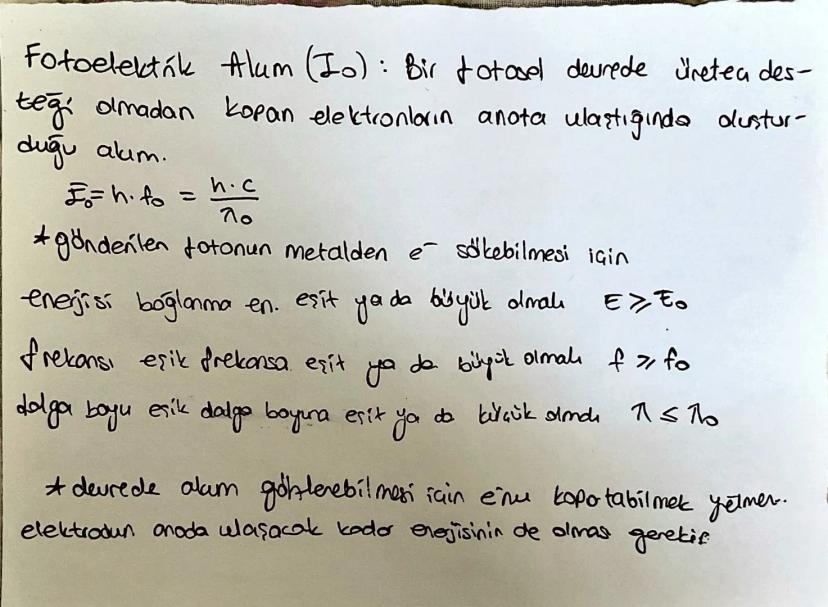 Fotoelektrik Akım (I₀) : Bir fotosel devrede üreteç des-
teği olmadan kopan elektronların anota ulaştığında oluştur-
duğu akım.
E₀ = h.f₀ = h.c / λ₀
* gönderilen fotonun metalden e⁻ sökebilmesi için
enerjisi bağlanma en. eşit ya da büyük olmalı E ≥ E₀
frekansı eşik frekansa eşit ya da büyük olmalı f ≥ f₀
dalga boyu eşik dalga boyuna eşit ya da küçük olmalı λ ≤ λ₀
* devrede akım gözlenebilmesi için e⁻nu kopartabilmek yetmez.
elektrodun anoda ulaşacak kadar enerjisinin de olması gerekir